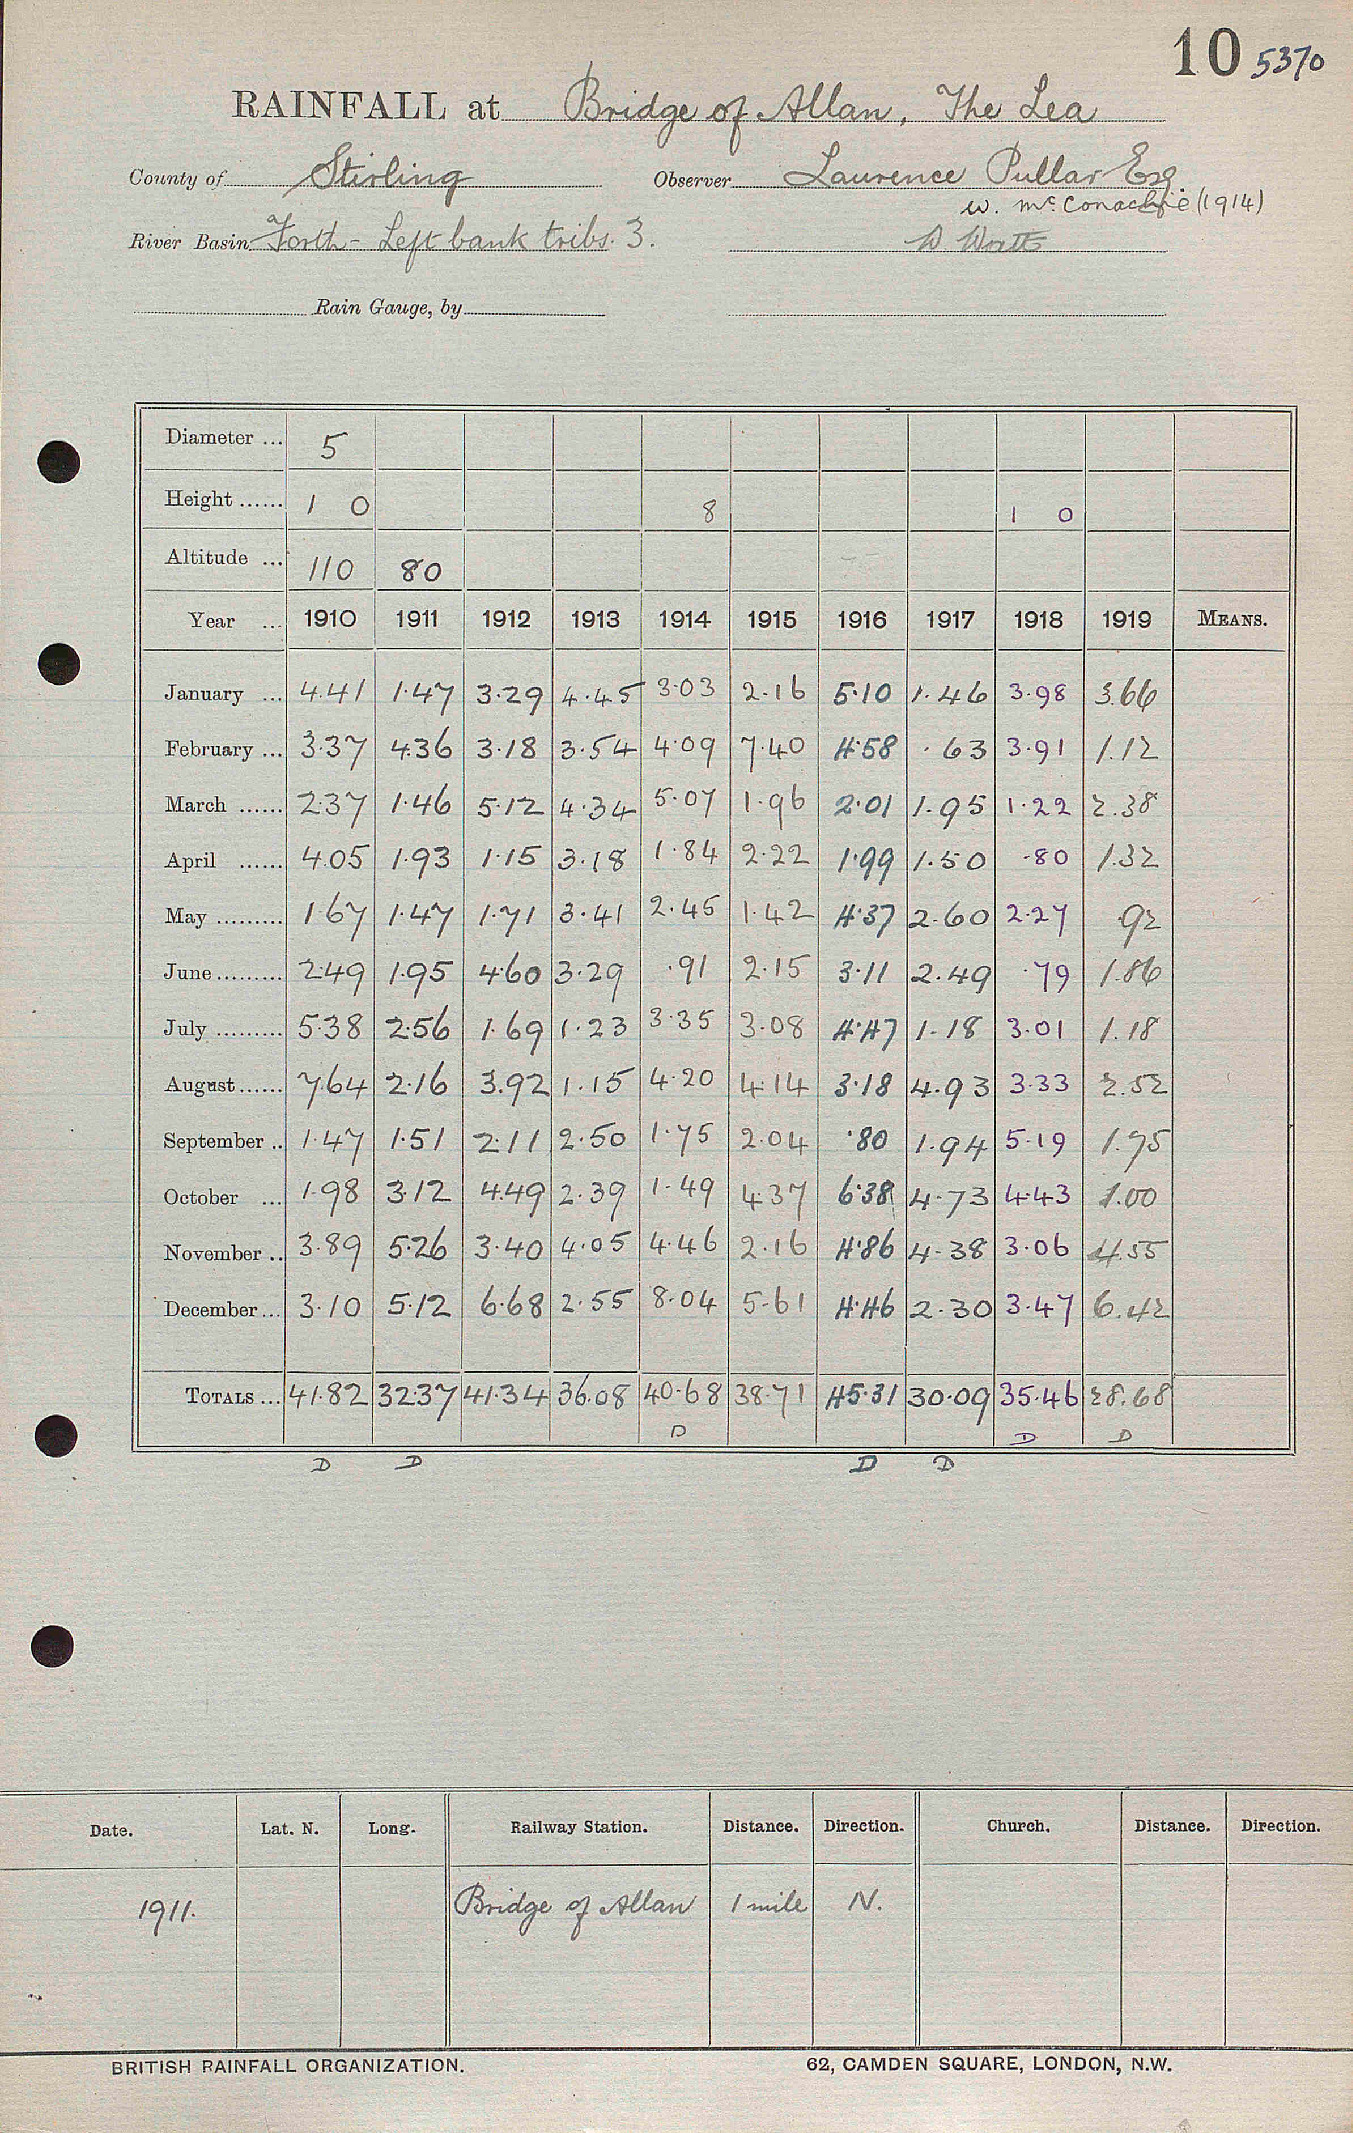 10 5370
RAINFALL at Bridge of Allan, The Lea
County of Stirling Observer Laurence Pullar Esq.
W. McConachie (1914)
River Basin Forth - Left bank tribs. 3.
Rain Gauge, by
Diameter ... 5
Height ...... 1 0 8 1 0
Altitude ... 110 80
Year ... 1910 1911 1912 1913 1914 1915 1916 1917 1918 1919 MEANS.
January ... 4.41 1.47 3.29 4.45 3.03 2.16 5.10 1.46 3.98 3.66
February ... 3.37 4.36 3.18 3.54 4.09 7.40 4.58 .63 3.91 1.12
March ...... 2.37 1.46 5.12 4.34 5.07 1.96 2.01 1.95 1.22 2.38
April ...... 4.05 1.93 1.15 3.18 1.84 2.22 1.99 1.50 .80 1.32
May ......... 1.67 1.47 1.71 3.41 2.45 1.42 4.37 2.60 2.27 .92
June ......... 2.49 1.95 4.60 3.29 .91 2.15 3.11 2.49 .79 1.86
July ......... 5.38 2.56 1.69 1.23 3.35 3.08 4.47 1.18 3.01 1.18
August ...... 7.64 2.16 3.92 1.15 4.20 4.14 3.18 4.93 3.33 2.52
September .. 1.47 1.51 2.11 2.50 1.75 2.04 .80 1.94 5.19 1.75
October ... 1.98 3.12 4.49 2.39 1.49 4.37 6.38 4.73 4.43 1.00
November .. 3.89 5.26 3.40 4.05 4.46 2.16 4.86 4.38 3.06 4.55
December ... 3.10 5.12 6.68 2.55 8.04 5.61 4.46 2.30 3.47 6.42
TOTALS ... 41.82 32.37 41.34 36.08 40.68 38.71 45.31 30.09 35.46 28.68
D D D
D D D D
Date. Lat. N. Long. Railway Station. Distance. Direction. Church. Distance. Direction.
1911. Bridge of Allan 1 mile N.
BRITISH RAINFALL ORGANIZATION. 62, CAMDEN SQUARE, LONDON, N.W.